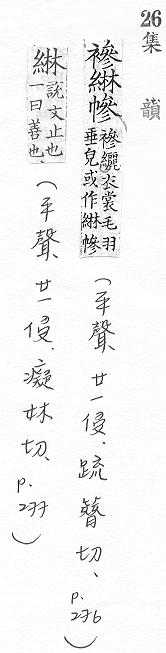 26
集韻
襂綝幓 襂纚衣裳毛羽垂皃或作綝幓 (平聲、廿一侵、疏簪切、p. 276)
綝 說文止也一曰善也 (平聲、廿一侵、癡林切、p. 277)